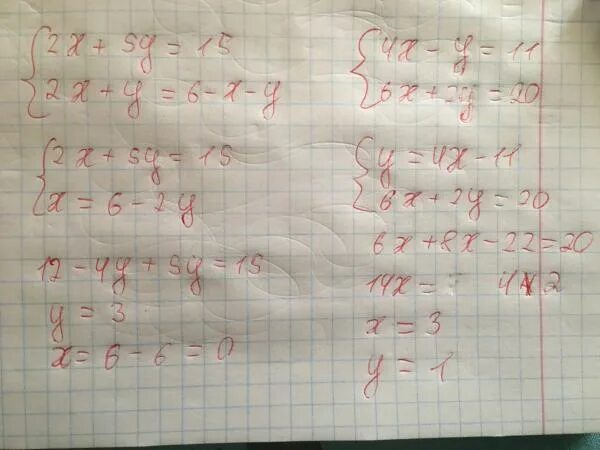 2x + 5y = 15
2x + y = 6 - x - y
2x + 5y = 15
x = 6 - 2y
12 - 4y + 5y = 15
y = 3
x = 6 - 6 = 0
4x - y = 11
6x + 2y = 20
y = 4x - 11
6x + 2y = 20
6x + 8x - 22 = 20
14x = 42
x = 3
y = 1